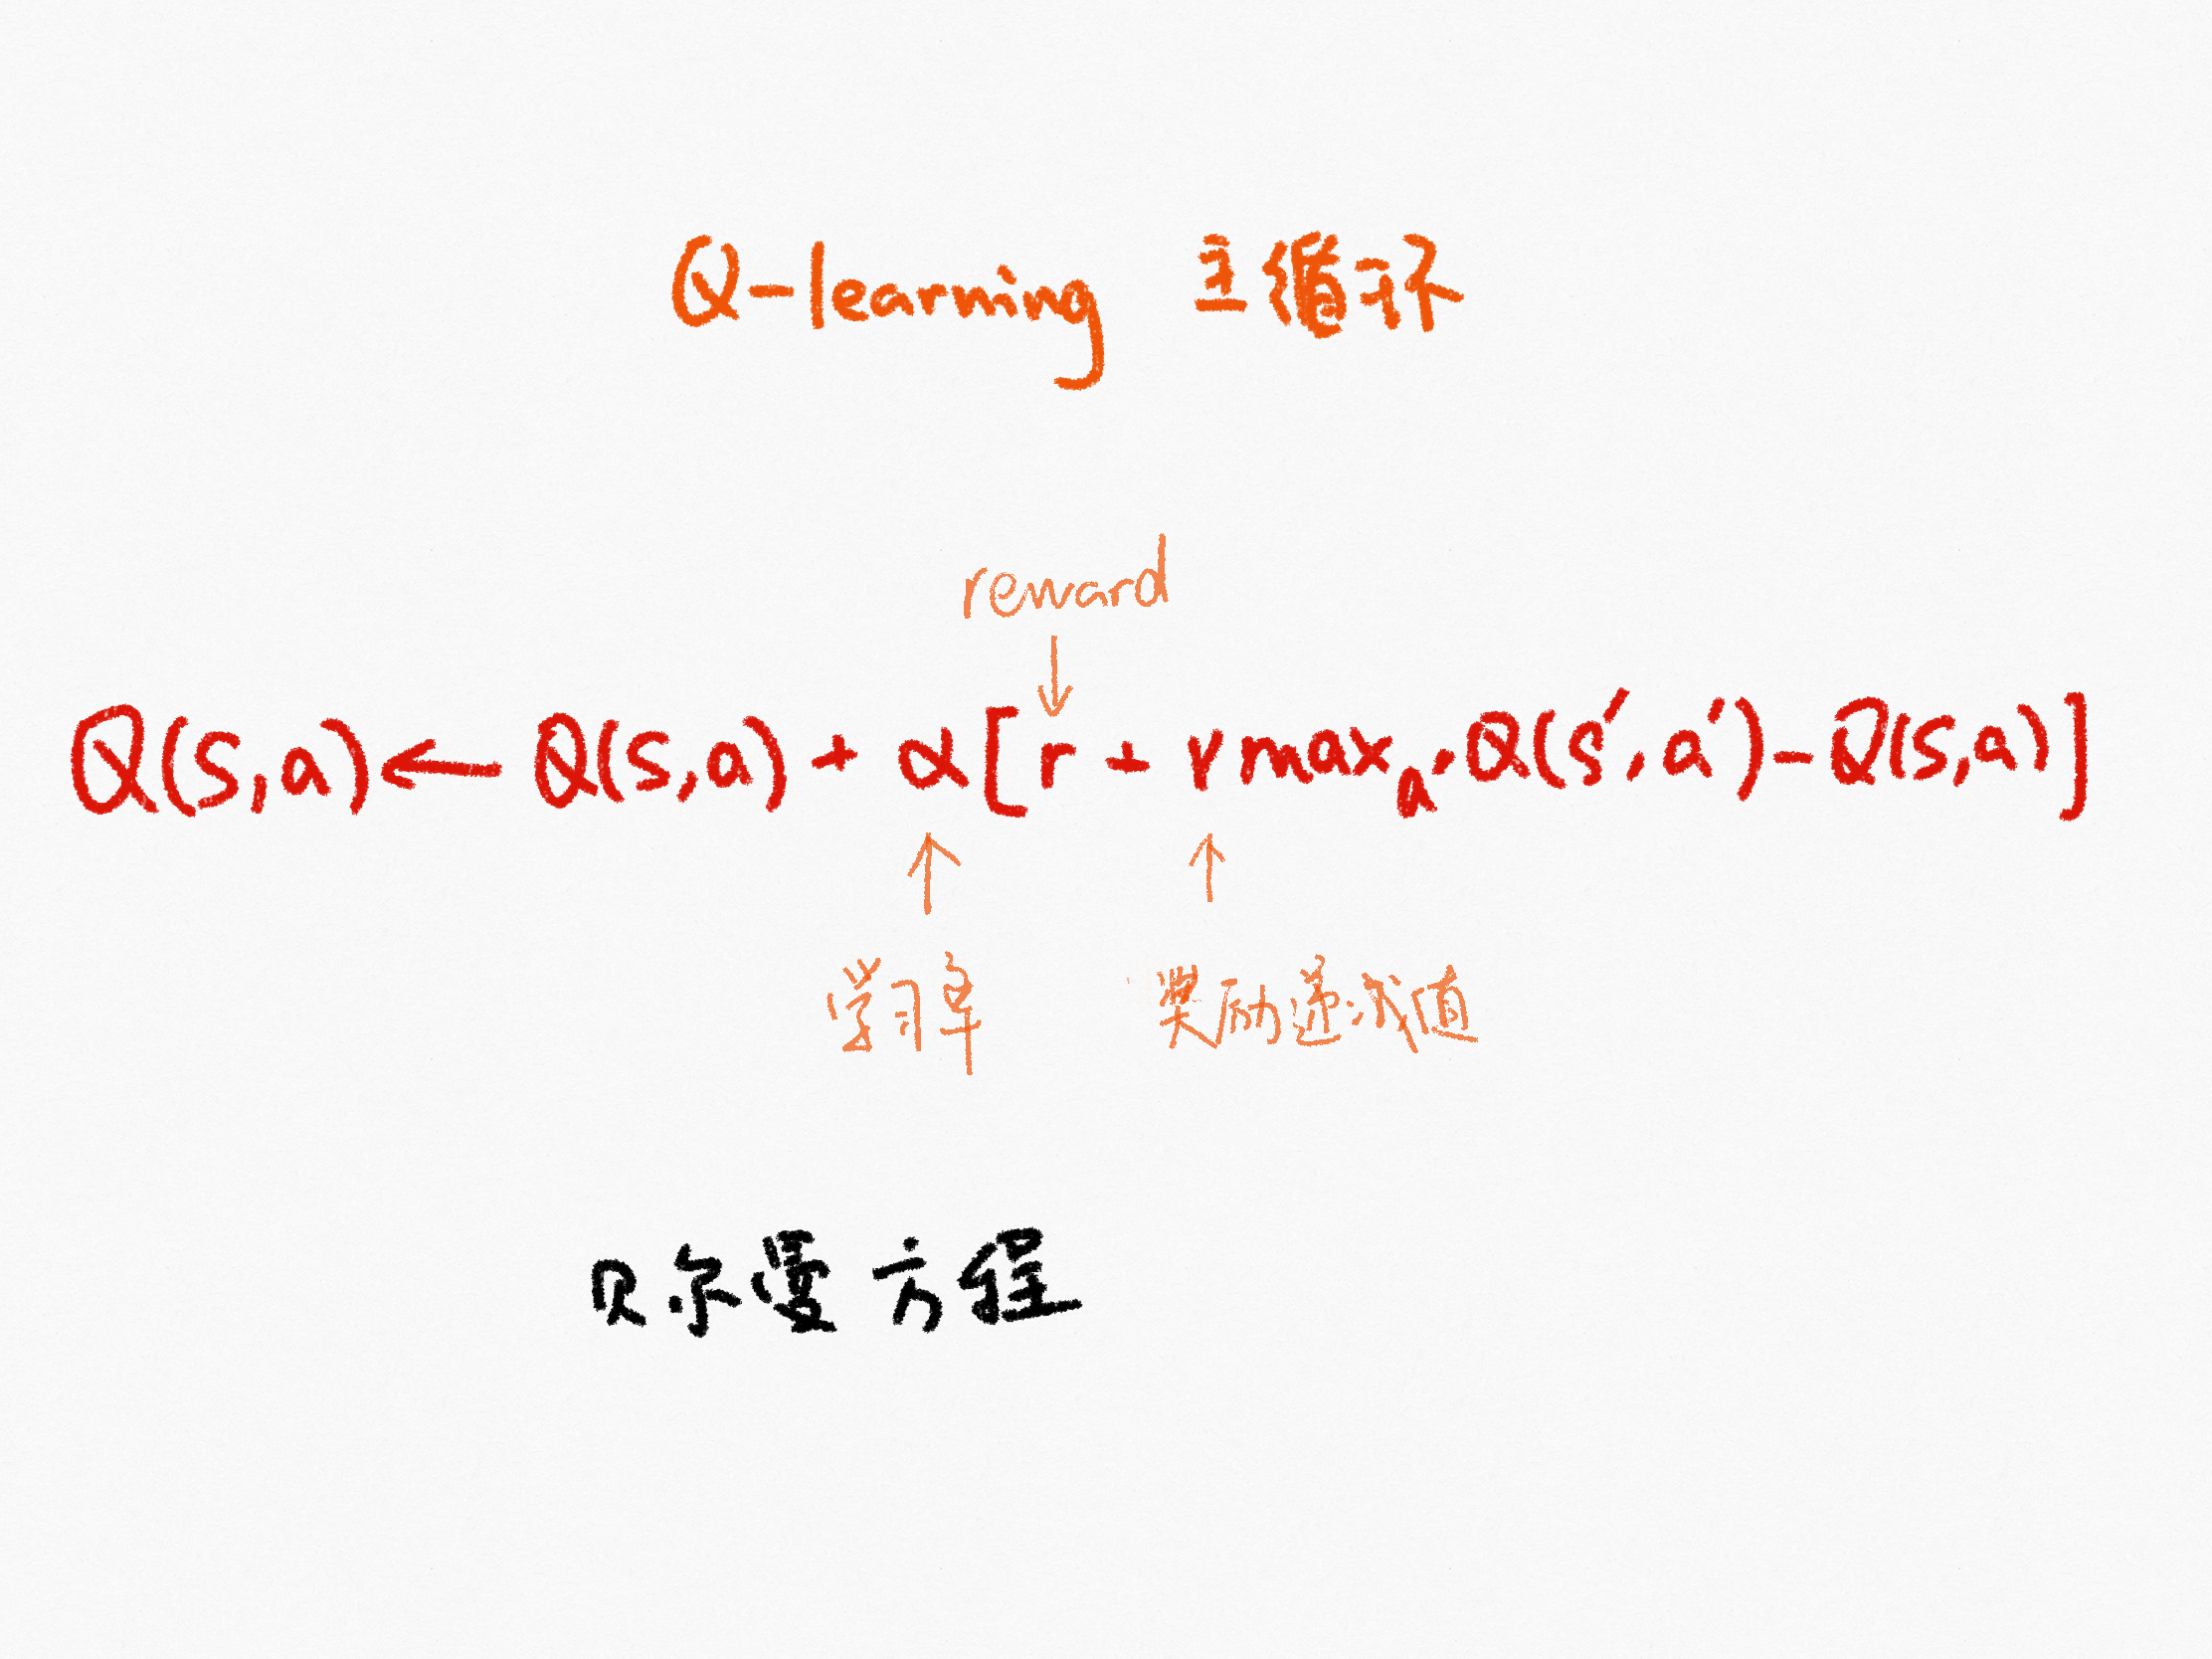 Q-learning 主循环
reward
Q(s,a)← Q(s,a) + α[r + γmaxₐ'Q(s',a')-Q(s,a)]
学习率 奖励递减值
贝尔曼方程